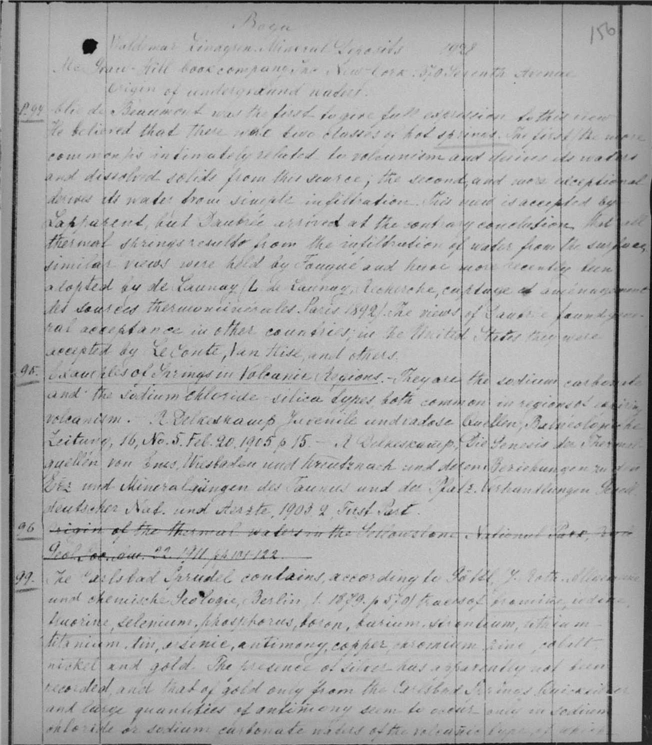 156
Waldemar Lindgren Mineral Deposits 1928
Mc Graw-Hill book company Inc New-York. 370 Seventh Avenue
Origin of underground waters.
p. 94 Elie de Beaumont was the first to give full expression to this view
He believed that there were two classes of hot springs. The first the more
common is intimately related to volcanism and derives its waters
and dissolved solids from this source; the second, and more exceptional
derives its water from simple infiltration. This view is accepted by
Lapparent, but Daubrée arrived at the contrary conclusion that all
thermal springs results from the infiltration of water from the surface,
similar views were held by Fouqué and have more recently been
adopted by de Launay (L. de Launay, Recherche, captage et aménagement
des sources thermominérales Paris 1892). The views of Daubrée found gene-
ral acceptance in other countries; in the United States they were
accepted by Le Conte, Van Hise, and others.
95. Examples of Springs in Volcanic Regions. - They are the sodium carbonate
and the sodium chloride - silica types both common in regions of
volcanism. - R Delkeskamp, Juvenile und vadose Quellen, Balneologische
Zeitung, 16, No. 5. Feb. 20, 1905 p 15 - R Delkeskamp, Die Genesis der Thermal-
quellen von Ems, Wiesbaden und Kreutznach und deren Beziehungen zu den
Erz und Mineralgängen des Taunus und der Pfalz. Verhandlungen Gesell.
deutscher Nat. und Aerzte, 1903 2, First Part.
96 Origin of the thermal waters in the Yellowstone National Park,
Geol. Soc. Am. 22, 1911, pp 101-122.
99. The Carlsbad Sprudel contains, according to Göttl, J. Roth. Allgemeine
und chemische Geologie, Berlin, 1. 1879. p 570) traces of bromine, iodine,
fluorine, selenium, phosphorus, boron, barium, strontium, lithium
titanium, tin, arsenic, antimony, copper, chromium zinc, cobalt,
nickel and gold. The presence of silver has apparently not been
recorded, and that of gold only from the Carlsbad Springs.
and large quantities of antimony seem to occur only in sodium
chloride or sodium carbonate waters of the volcanic type,